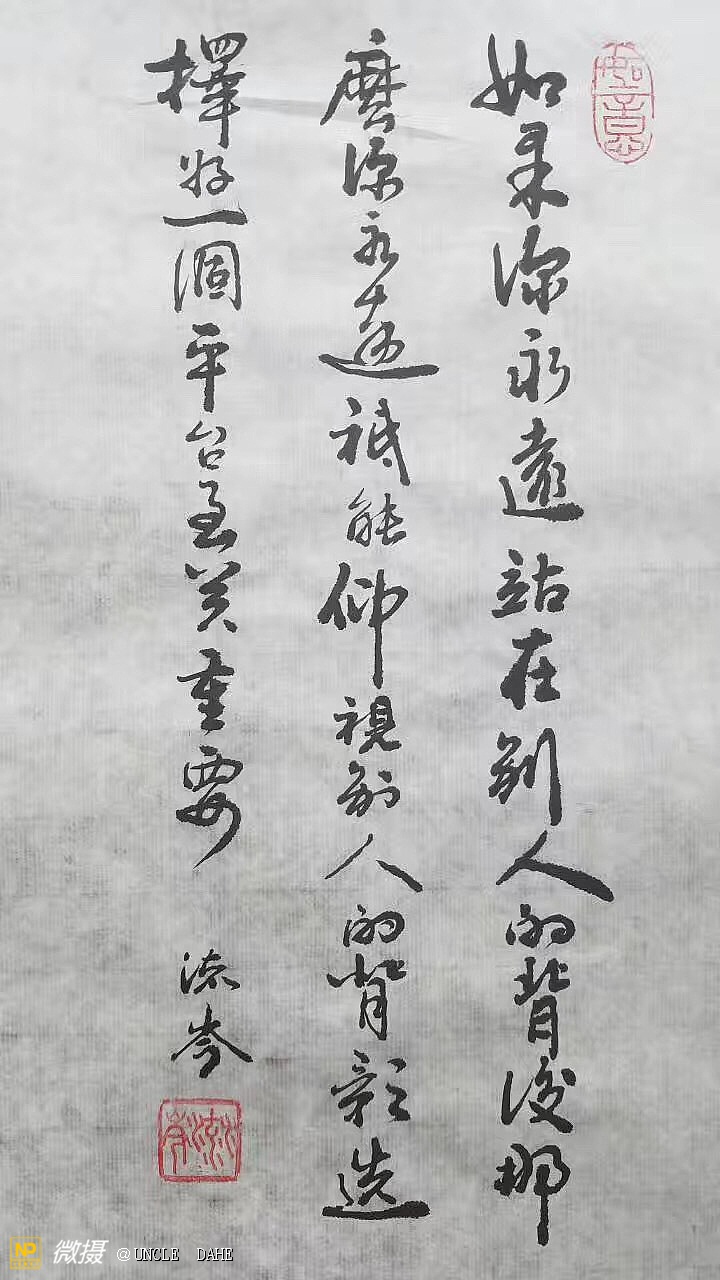 如意
如果你永遠站在别人的背後那
麼你永遠祗能仰視别人的背影选
擇好一個平台至关重要
岑
NP 微摄 @UNCLE DAHE